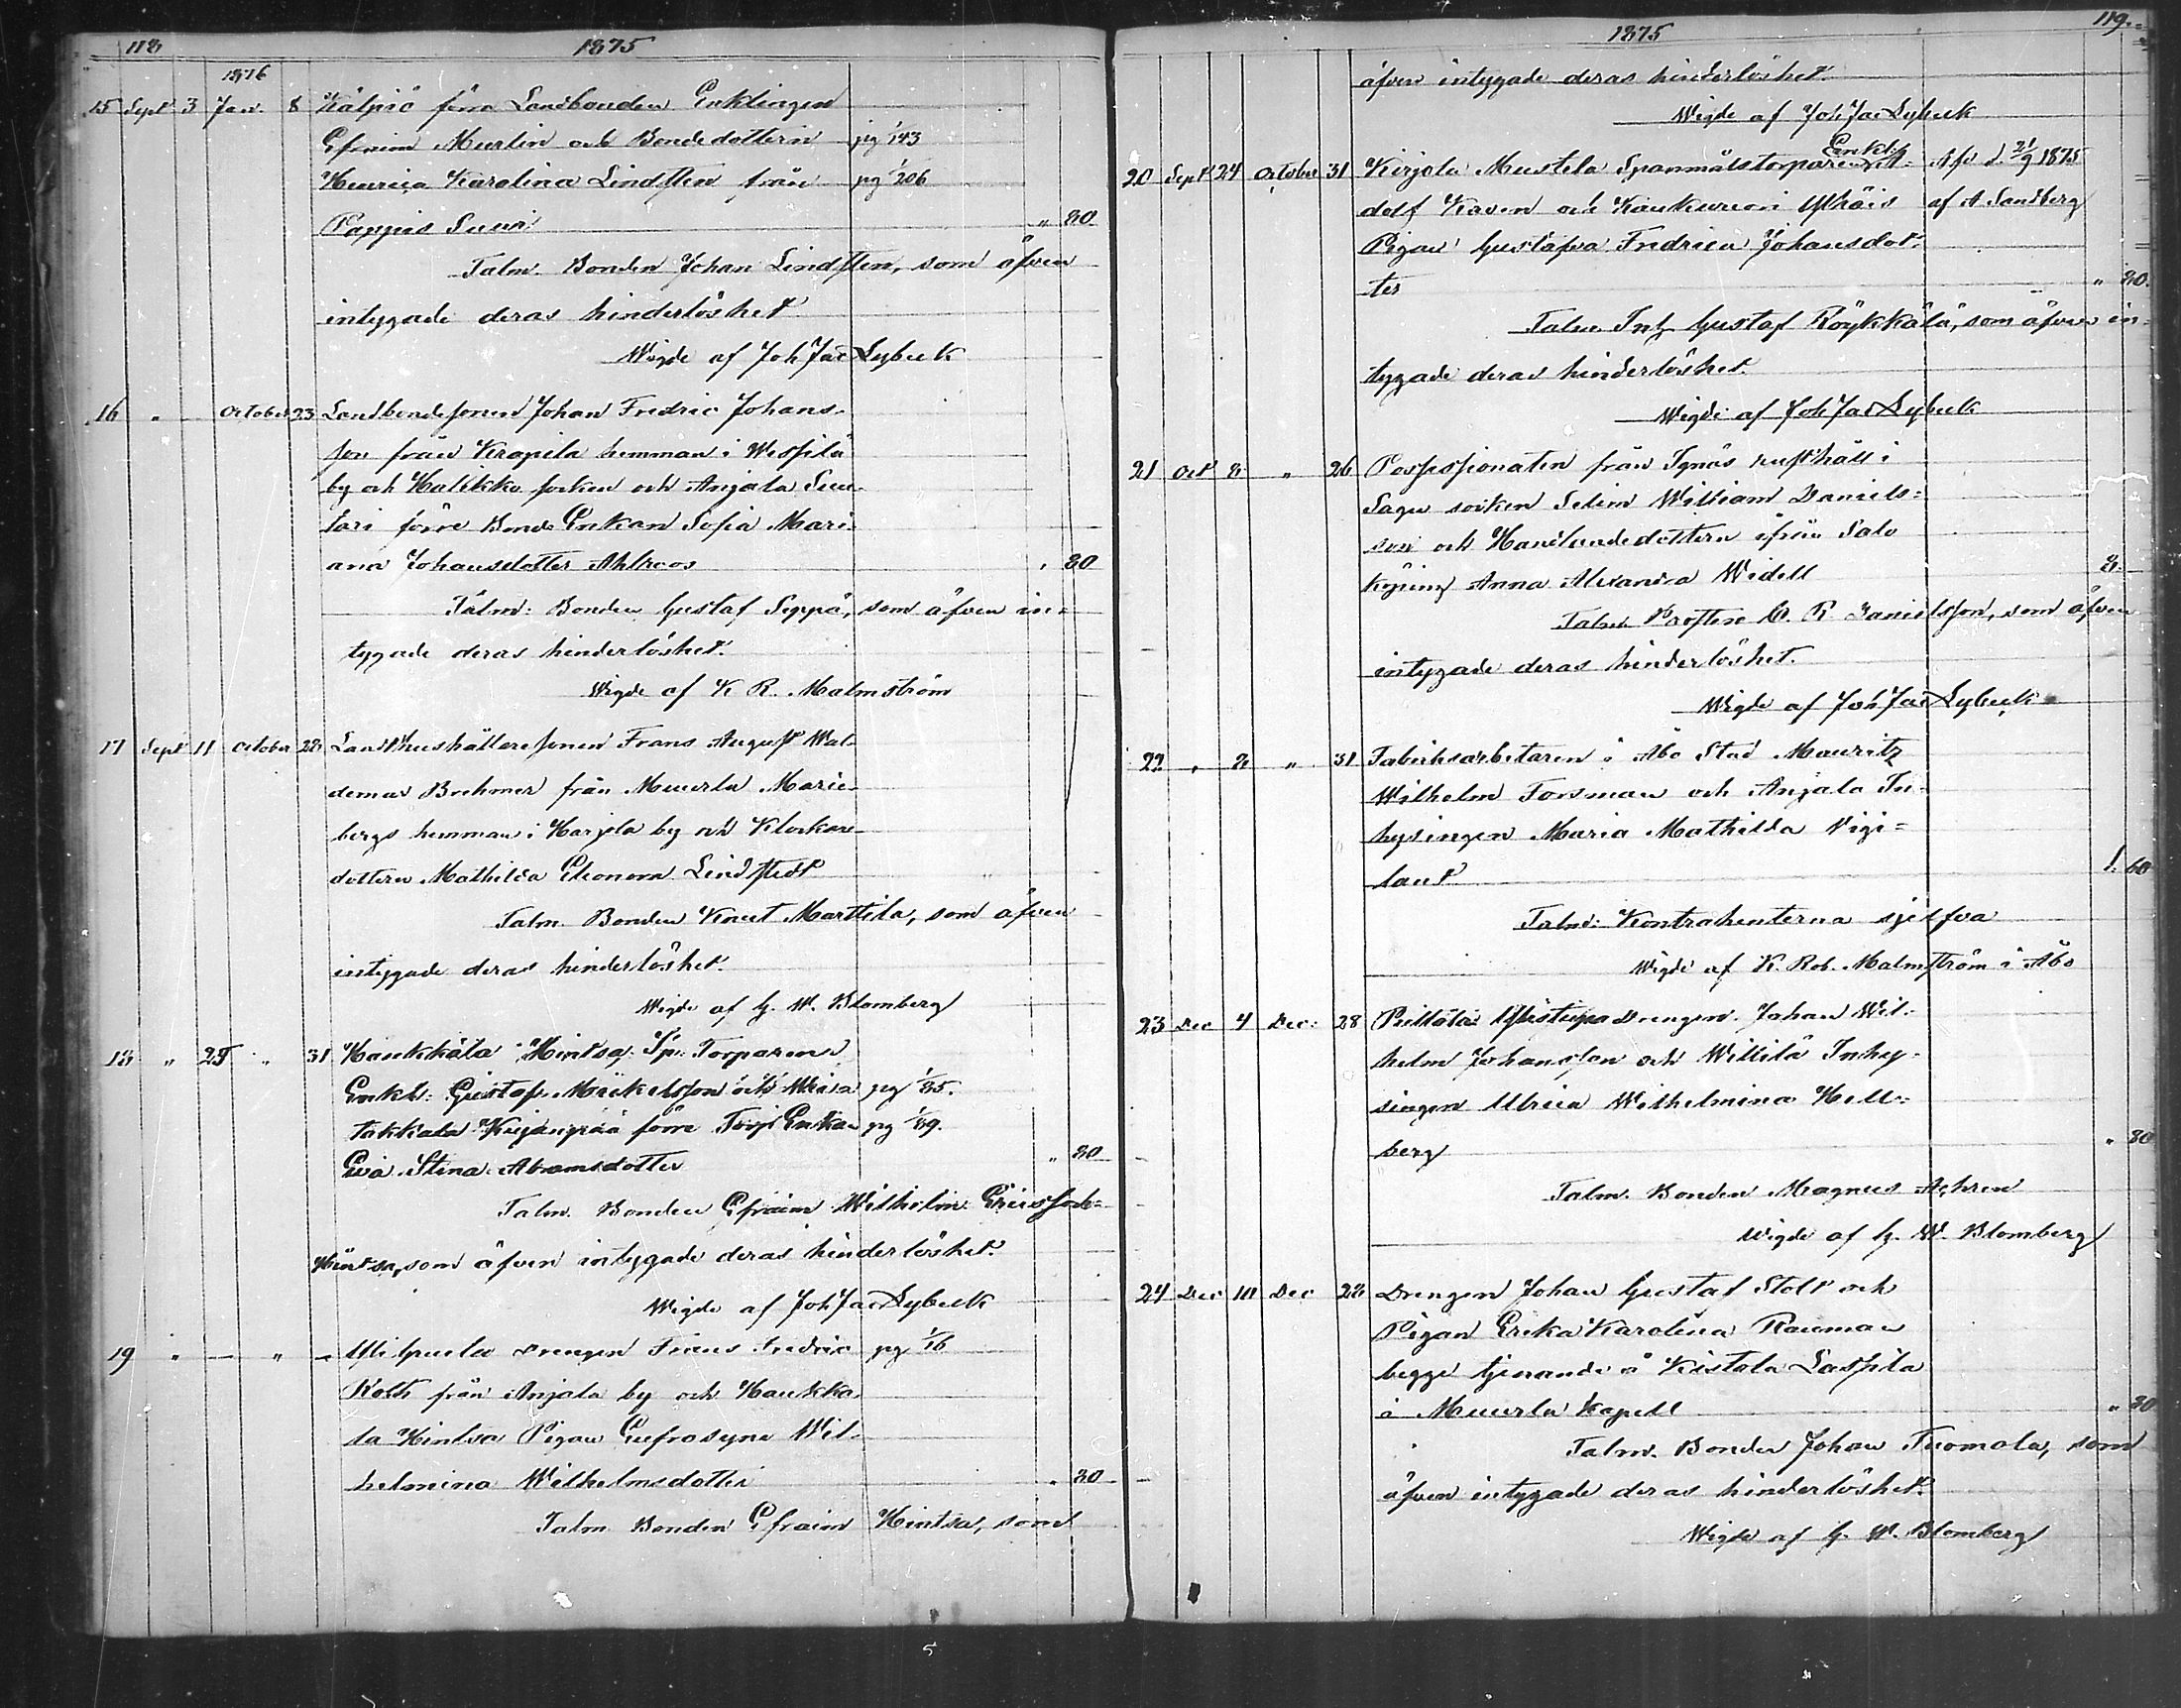 118 1875
1876
15 Sept 3 Jan. 8 Kälpiö förra Landbonden Enklingen
Efraim Murlin och Bondedottern pg 143
Henrica Karolina Lindsten från pg 206
Pappis Suni " 80
Talm. Bonden Johan Lindsten, som äfven
intygade deras hinderlöshet
Wigde af Joh Jac Lybeck
16 " October 23 Landbondesonen Johan Fredric Johans-
son från Krapila hemman i Wespilä
by och Halikko socken och Anjala Suu-
tari förre Bonde Enkan Sofia Mari-
ana Johansdotter Ahlroos " 80
Talm: Bonden Gustaf Seppä, som äfven in-
tygade deras hinderlöshet.
Wigde af K R. Malmström
17 Sept 11 October 28 Landthushållaresonen Frans August Wal-
demar Brehmer från Muurla Marie-
bergs hemman i Harjola by och Klockare-
dottern Mathilda Eleonora Lindstedt "
Talm. Bonden Knut Marttila, som äfven
intygade deras hinderlöshet.
Wigde af G. W. Blomberg
18 " 25 " 31 Haukkala Hintsa Sp: Torparen
Enkl: Gustaf Mickelsson och pg 85.
takkala förra Torp Enkan pg 89.
Eva Stina Abramsdotter " 80
Talm. Bonden Efraim Wilhelm Ericsson
Hintsa, som äfven intygade deras hinderlöshet.
Wigde af Joh Jac Lybeck
19 " — " — Drengen Frans Fredric pg 16
Roth från Anjala by och Haukka-
la Hintsa Pigan Eufrosyne Wil-
helmina Wilhelmsdotter " 80
Talm Bonden Efraim Hintsa, som
1875 119.
äfven intygade deras hinderlöshet.
Wigde af Joh Jac Lybeck
Enkl:
20 Sept 24 October 31 Kirjola Mustila Spanmålstorparen A- Afs d. 21/9 1875
dolf Kaven och af A Sandberg
Pigan Gustafva Fredrica Johansdot-
ter " 80.
Talm Inh Gustaf Röykkälä, som äfven in-
tygade deras hinderlöshet.
Wigde af Joh Jac Lybeck
21 Oct 8 " 26 Possessionaten från Tynäs rusthåll i
Sagu socken Selim William Daniels-
son och Handlandedottern ifrån Salo
Köping Anna Alexandra Widell 8.
Talm Prosten C. R. Danielsson, som äfven
intygade deras hinderlöshet.
Wigde af Joh Jac Lybeck
22 " 8 " 31 Fabriksarbetaren i Åbo Stad Mauritz
Wilhelm Forsman och Anjala In-
hysingen Maria Mathilda Vigi-
lant 1. 60
Talm: Kontrahenterna sjelfva
Wigde af K. Rob. Malmström i Åbo
23 Dec 4 Dec: 28 Drengen Johan Wil-
helm Johansson och Willilä Inhy-
singen Ulrica Wilhelmina Hell-
berg " 80
Talm. Bonden Magnus Achren
Wigde af G. W. Blomberg
24 Dec 10 Dec 28 Drengen Johan Gustaf Stolt och
Pigan Erika Karolina Rauman
begge tjenande å Kistola Laspila
i Muurla Kapell " 80
Talm. Bonden Johan Tuomola, som
äfven intygade deras hinderlöshet.
Wigde af G. W. Blomberg
5